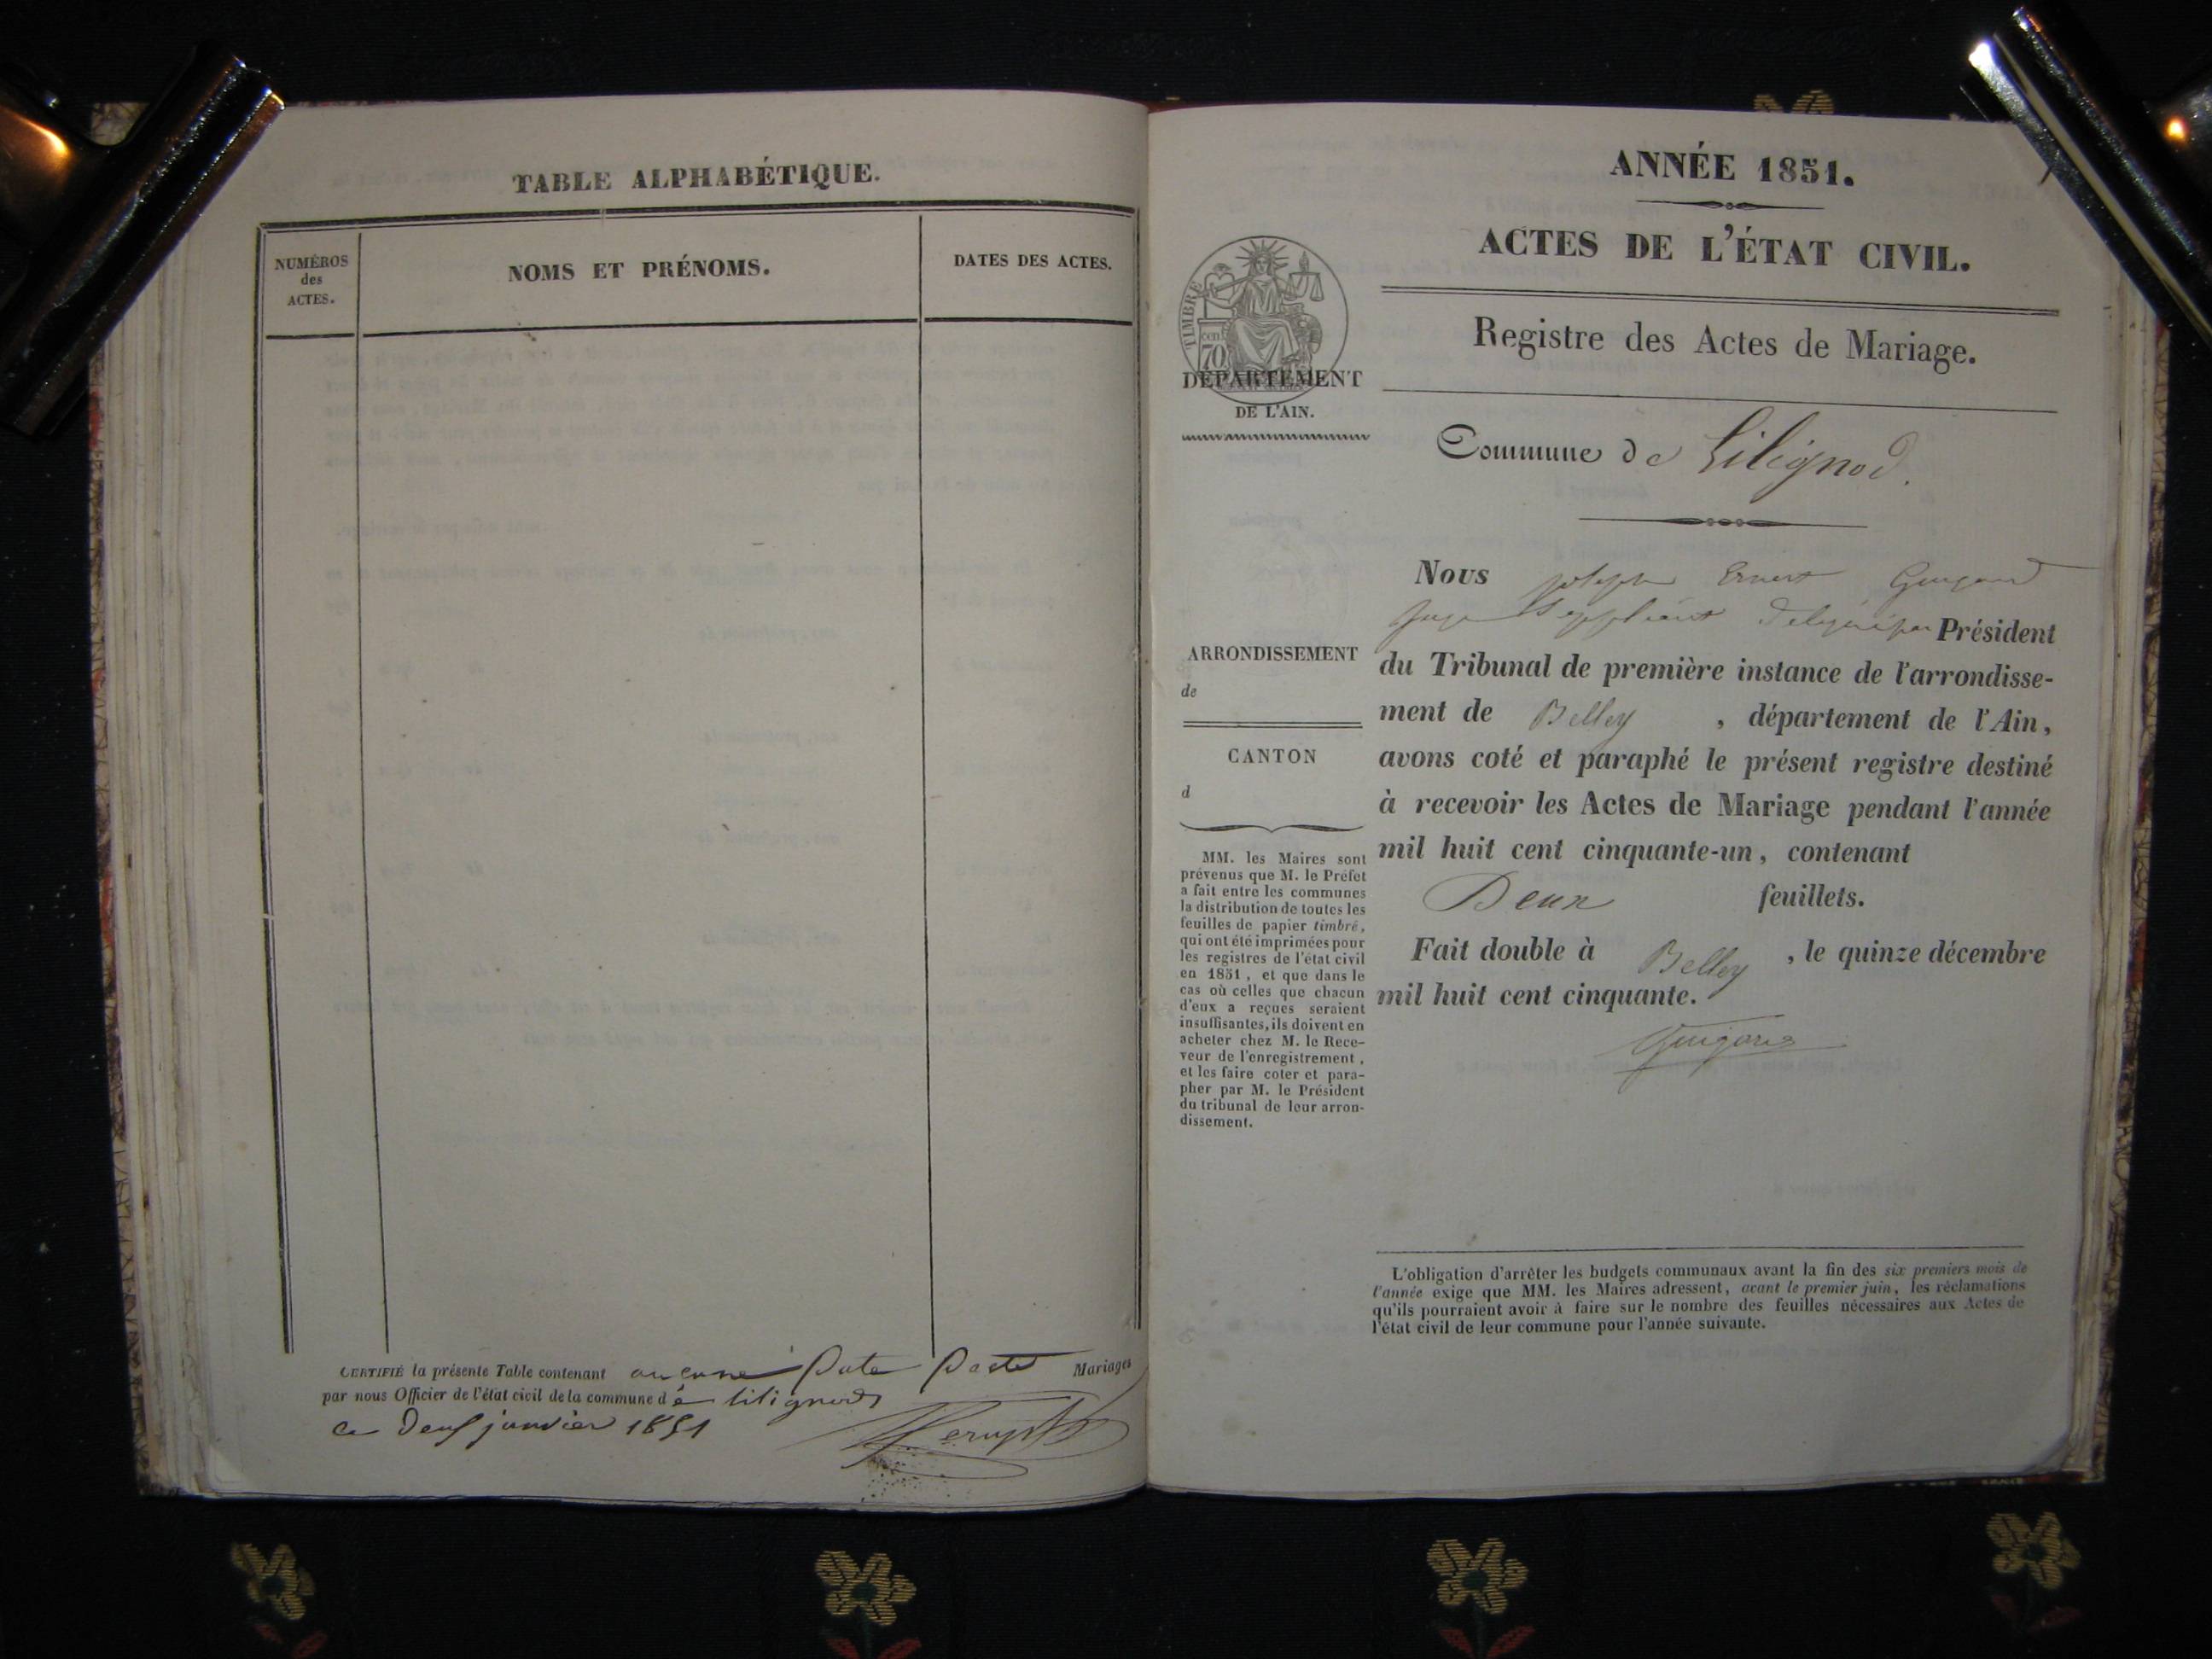 TABLE ALPHABÉTIQUE.
NUMÉROS
des
ACTES.
NOMS ET PRÉNOMS.
DATES DES ACTES.
CERTIFIÉ la présente Table contenant aucune Mariages
par nous Officier de l'état civil de la commune d é lilignod
ce deux janvier 1851
ANNÉE 1851.
ACTES DE L'ÉTAT CIVIL.
Registre des Actes de Mariage.
TIMBRE
cent
70
DÉPARTEMENT
DE L'AIN.
Commune de Lilignod.
Nous joseph Ernest
juge Suppléant Président
du Tribunal de première instance de l'arrondisse-
ment de Belley , département de l'Ain,
avons coté et paraphé le présent registre destiné
à recevoir les Actes de Mariage pendant l'année
mil huit cent cinquante-un, contenant
Deux feuillets.
Fait double à Belley , le quinze décembre
mil huit cent cinquante.
ARRONDISSEMENT
de
CANTON
d
MM. les Maires sont
prévenus que M. le Préfet
a fait entre les communes
la distribution de toutes les
feuilles de papier timbré,
qui ont été imprimées pour
les registres de l'état civil
en 1851, et que dans le
cas où celles que chacun
d'eux a reçues seraient
insuffisantes, ils doivent en
acheter chez M. le Rece-
veur de l'enregistrement,
et les faire coter et para-
pher par M. le Président
du tribunal de leur arron-
dissement.
L'obligation d'arrêter les budgets communaux avant la fin des six premiers mois de
l'année exige que MM. les Maires adressent, avant le premier juin, les réclamations
qu'ils pourraient avoir à faire sur le nombre des feuilles nécessaires aux Actes de
l'état civil de leur commune pour l'année suivante.